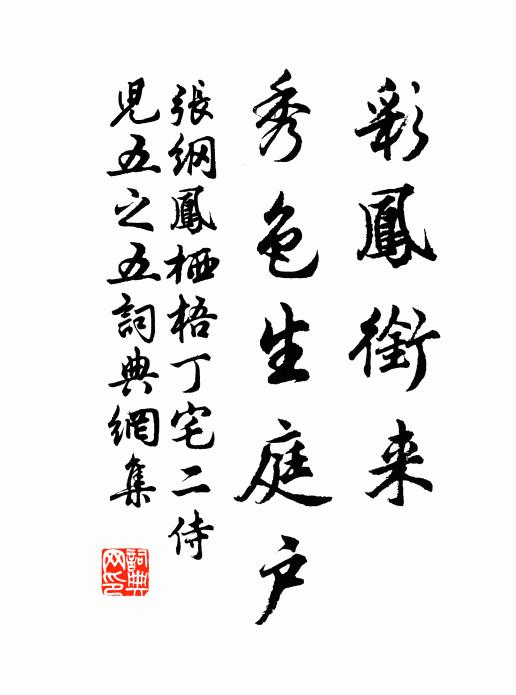 彩鳳銜来
秀色生庭户
張綱鳳栖梧丁宅二侍
兒五之五詞典網集
詞典
网印